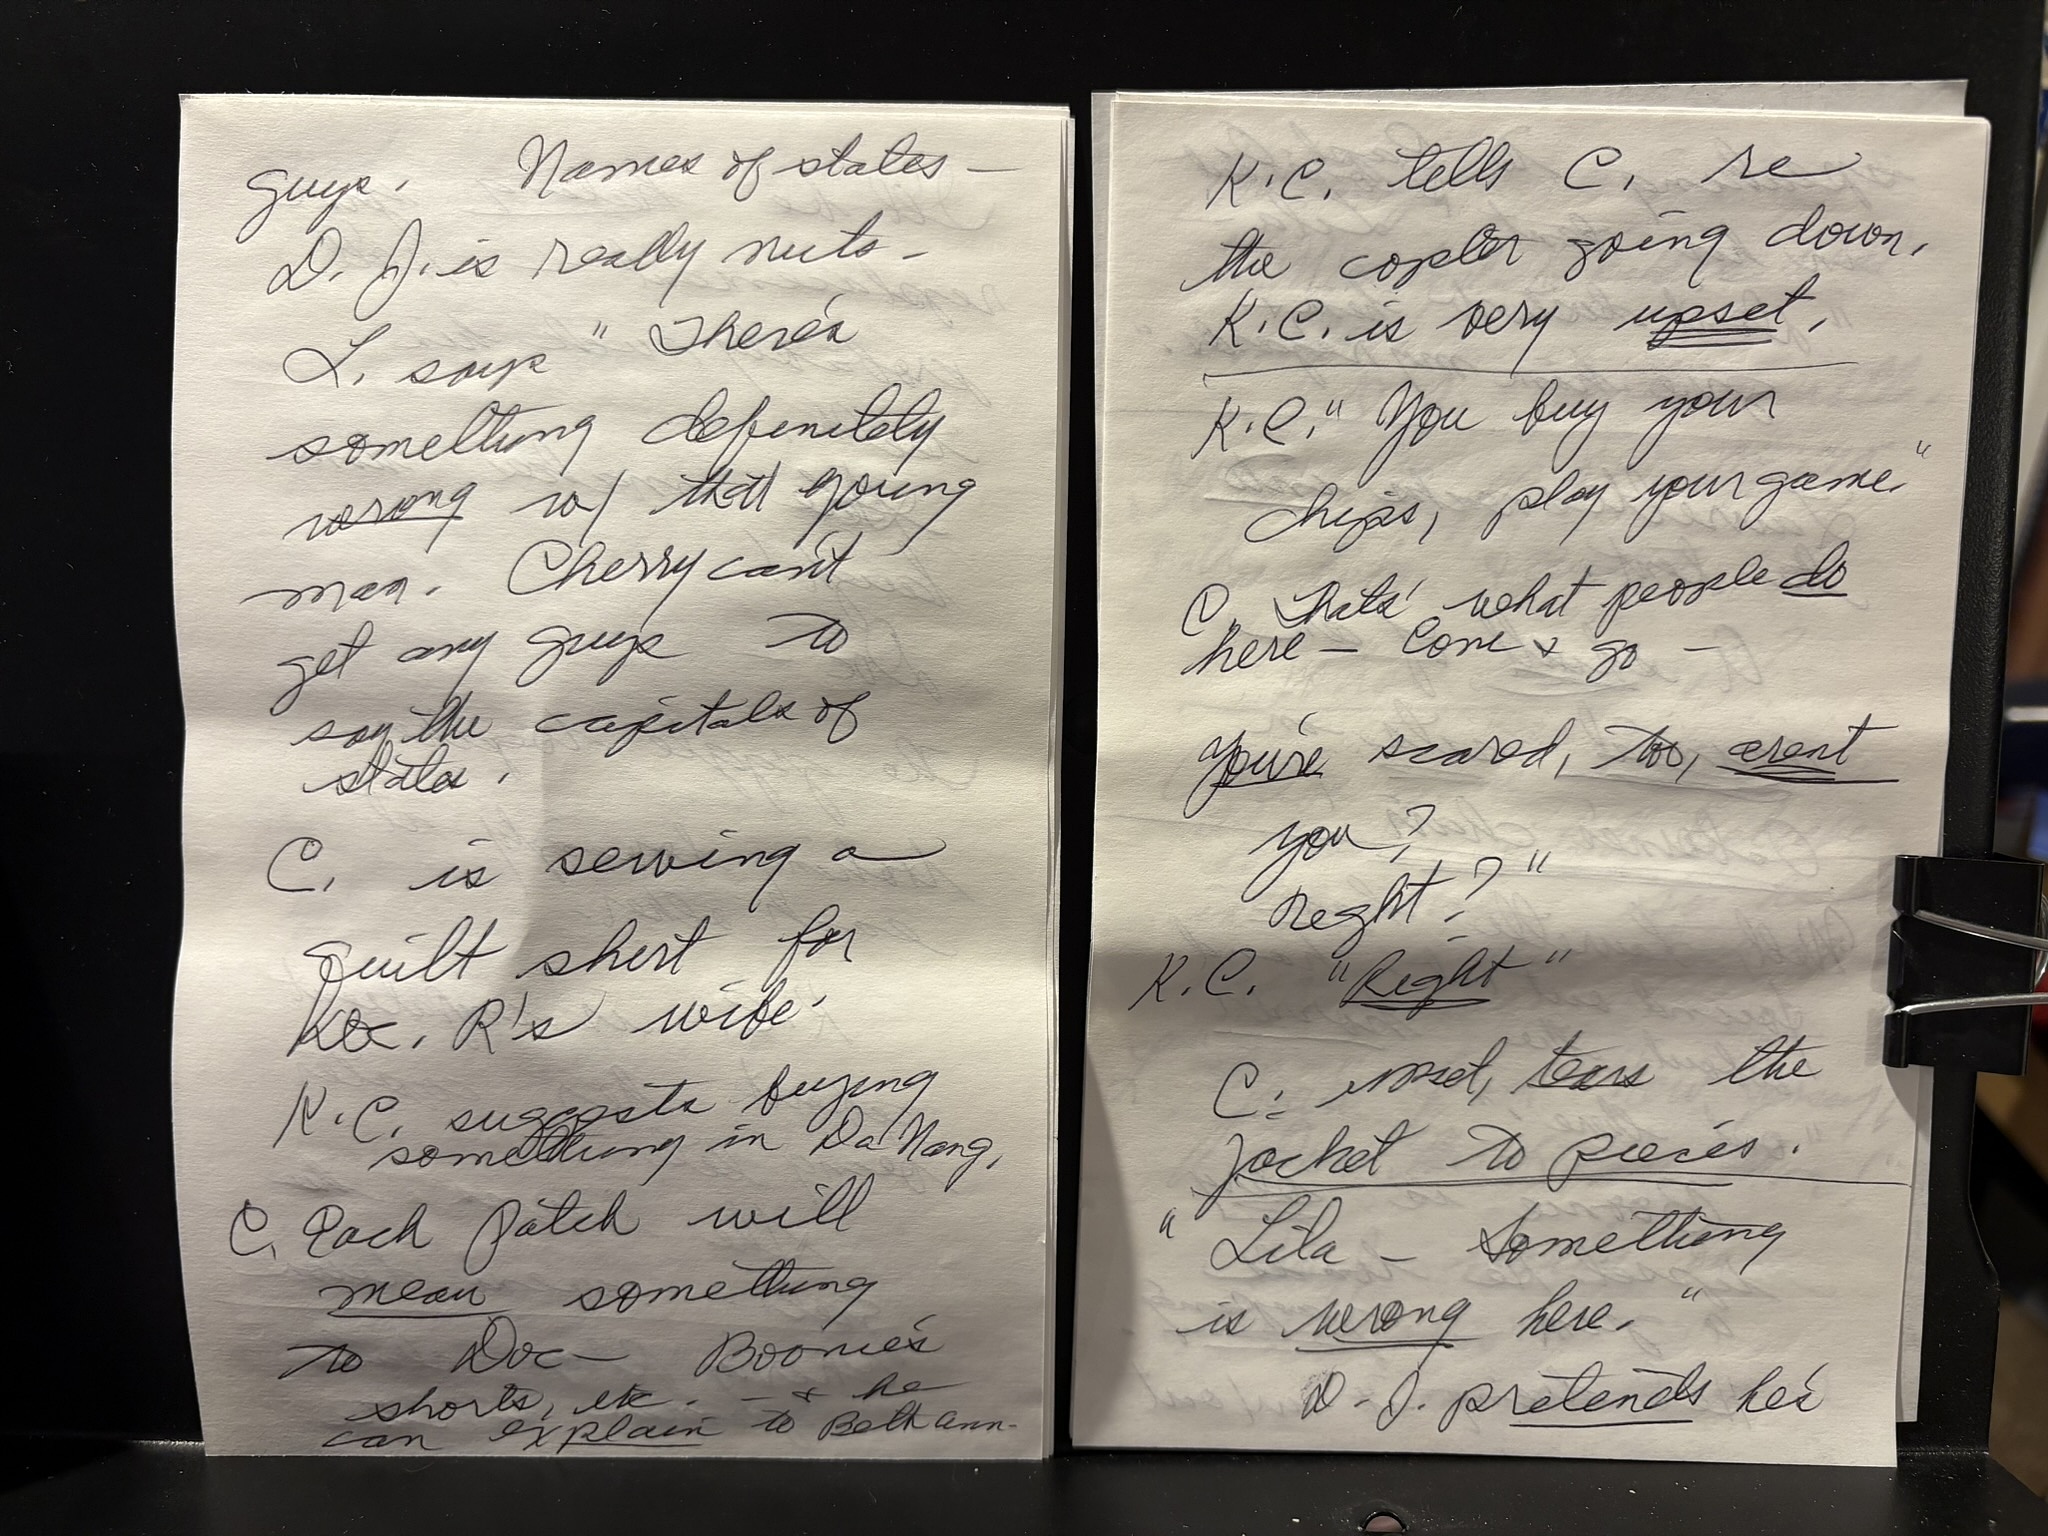 guys. Names of states —
D. J. is really nuts -
L. says " There's
something definitely
wrong w/ that young
man. Cherry can't
get any guys to
say the capitals of
states.
C. is sewing a
quilt shirt for
Doc. R's wife.
K.C. suggests buying
something in Da Nang.
C. Each patch will
mean something
to Doc — Boonie's
shorts, etc. — & he
can explain to Beth ann-
K.C. tells C. re
the copter going down.
K.C. is very upset.
K.C. " You buy your
chips, play your game."
C. Thats' what people do
here — Come & go —
You're scared, too, arent
you?
right?"
K.C. "Right"
C: mad, tears the
jacket to pieces.
" Lila — Something
is wrong here."
D.J. pretends he's